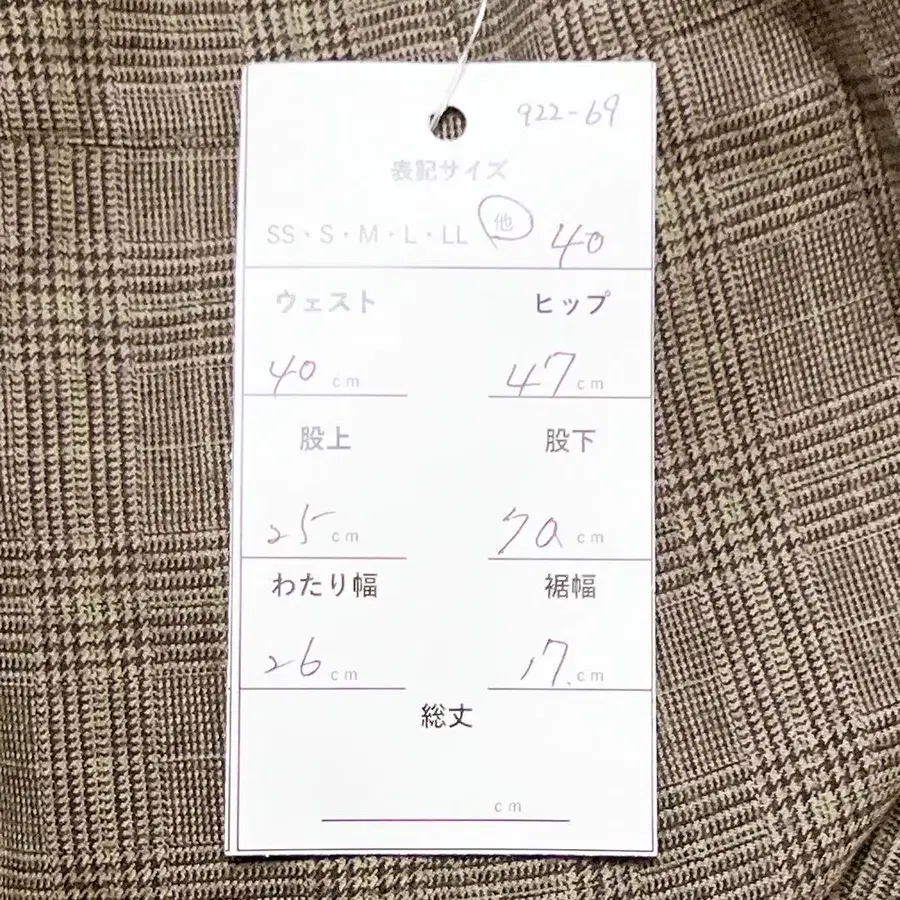 922-69
表記サイズ
SS・S・M・L・LL 他 40
ウェスト ヒップ
40 cm 47 cm
股上 股下
25 cm 70 cm
わたり幅 裾幅
26 cm 17 cm
総丈
cm